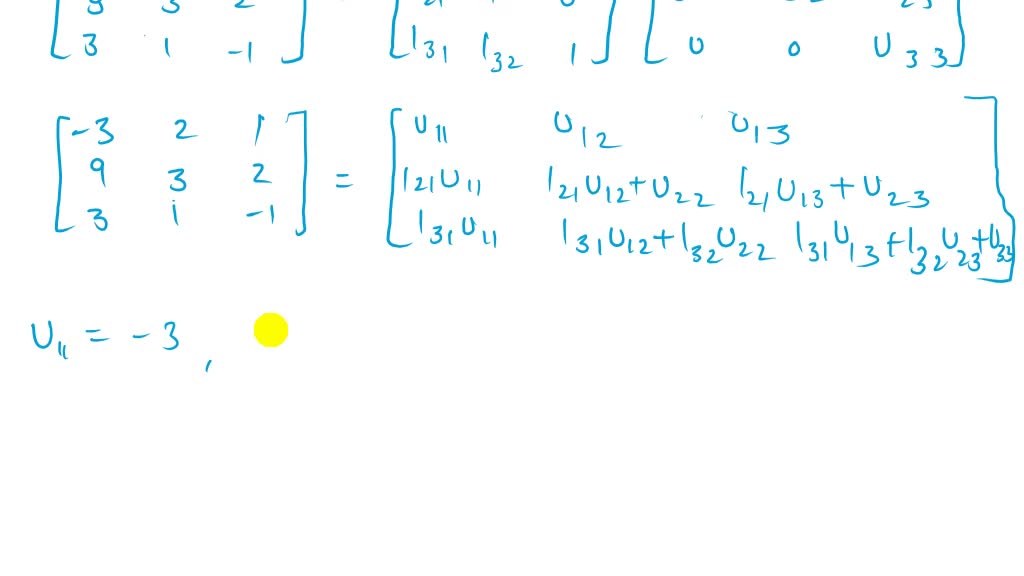 3 1 -1 l31 l32 1 0 0 U33
-3 2 1 U11 U12 U13
9 3 2 = l21U11 l21U12+U22 l21U13+U23
3 1 -1 l31U11 l31U12+l32U22 l31U13+l32U23+U33
U11 = -3,